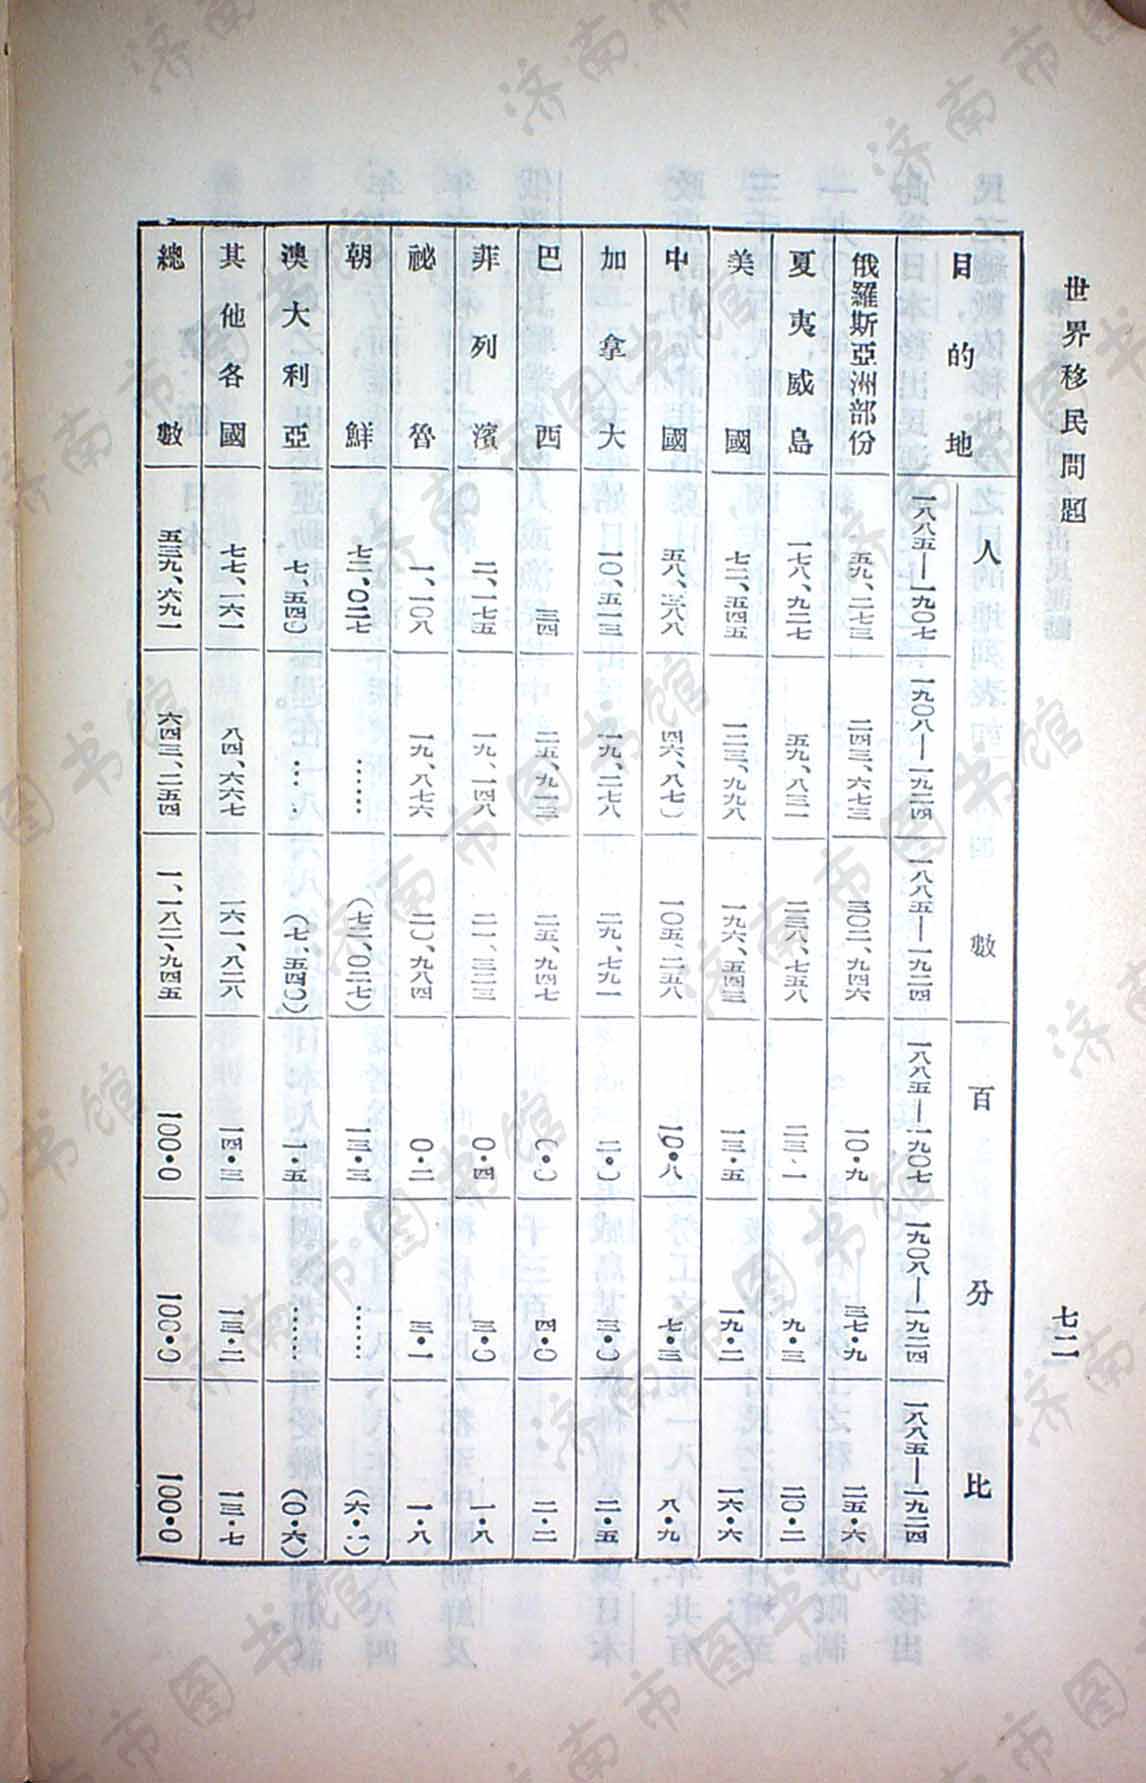 世界移民問題 七二
目的地 人數 百分比
一八八五—一九〇七 一九〇八—一九二四 一八八五—一九二四 一八八五—一九〇七 一九〇八—一九二四 一八八五—一九二四
俄羅斯亞洲部份 五九、二七三 二四三、六七三 三〇二、九四六 一〇・九 三七・九 二五・六
夏夷威島 一七八、九二七 五九、八三一 二三八、七五八 二三・一 九・三 二〇・二
美國 七二、五四五 一二三、九九八 一九六、五四三 一三・五 一九・二 一六・六
中國 五八、三八八 四六、八七〇 一〇五、二五八 一〇・八 七・三 八・九
加拿大 一〇、五一三 一九、二七八 二九、七九一 二・〇 三・〇 二・五
巴西 三四 二五、九一三 二五、九四七 〇・〇 四・〇 二・二
菲列濱 二、一七五 一九、一四八 二一、三二三 〇・四 三・〇 一・八
祕魯 一、一〇八 一九、八七六 二〇、九八四 〇・二 三・一 一・八
朝鮮 七二、〇二七 …… (七二、〇二七) 一三・三 …… (六・一)
澳大利亞 七、五四〇 …… (七、五四〇) 一・五 …… (〇・六)
其他各國 七七、一六一 八四、六六七 一六一、八二八 一四・三 一三・二 一三・七
總數 五三九、六九一 六四三、二五四 一、一八二、九四五 一〇〇・〇 一〇〇・〇 一〇〇・〇
济南市图书馆